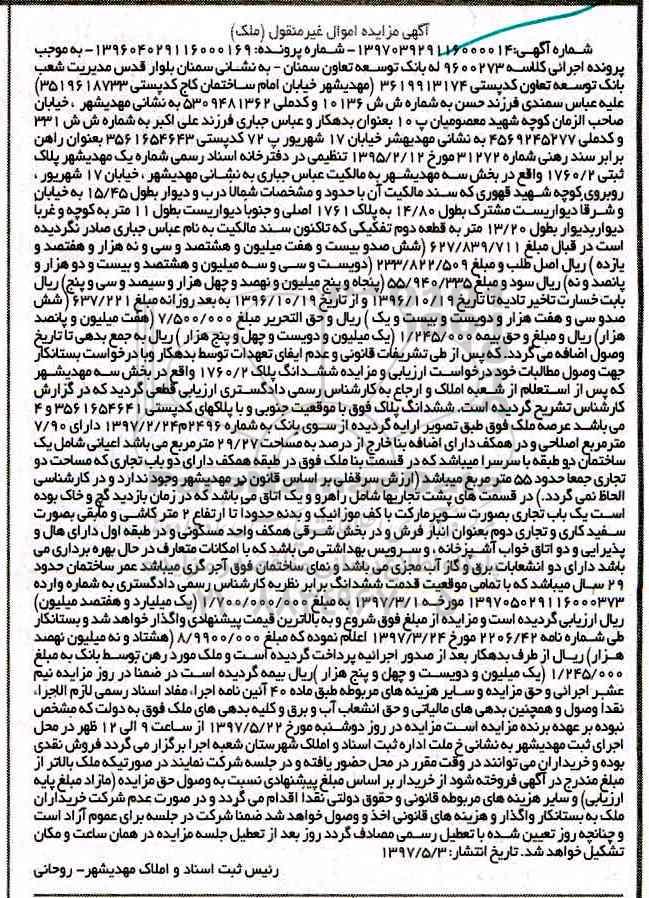 آگهی مزایده اموال غیرمنقول (ملک)
شماره آگهی:۱۳۹۷۰۳۹۲۹۱۱۶۰۰۰۰۱۴- شماره پرونده: ۱۳۹۶۰۴۰۲۹۱۱۶۰۰۰۱۶۹- به موجب
پرونده اجرائی کلاسه ۹۶۰۰۲۷۳ له بانک توسعه تعاون سمنان - به نشانی سمنان بلوار قدس مدیریت شعب
بانک توسعه تعاون کدپستی ۳۶۱۹۹۱۳۱۷۴ (مهدیشهر خیابان امام ساختمان کاج کدپستی ۳۵۱۹۶۱۸۷۳۳)
علیه عباس سمندی فرزند حسن به شماره ش ش ۱۰۱۳۶ و کدملی ۵۳۰۹۴۸۱۳۶۲ به نشانی مهدیشهر ، خیابان
صاحب الزمان کوچه شهید معصومیان پ ۱۰ بعنوان بدهکار و عباس جباری فرزند علی اکبر به شماره ش ش ۳۳۱
و کدملی ۴۵۶۹۲۴۵۲۷۷ به نشانی مهدیهشر خیابان ۱۷ شهریور پ ۷۲ کدپستی ۳۵۶۱۶۵۴۶۴۳ بعنوان راهن
برابر سند رهنی شماره ۳۱۲۷۲ مورخ ۱۳۹۵/۲/۱۲ تنظیمی در دفترخانه اسناد رسمی شماره یک مهدیشهر پلاک
ثبتی ۱۷۶۰/۲ واقع در بخش سه مهدیشهر به مالکیت عباس جباری به نشانی مهدیشهر ، خیابان ۱۷ شهریور ،
روبروی کوچه شهید قهوری که سند مالکیت آن با حدود و مشخصات شمالا درب و دیوار بطول ۱۵/۴۵ به خیابان
و شرقا دیواریست مشترک بطول ۱۴/۸۰ به پلاک ۱۷۶۱ اصلی و جنوبا دیواریست بطول ۱۱ متر به کوچه و غربا
دیواربدیوار بطول ۱۳/۲۰ متر به قطعه دوم تفکیکی که تاکنون سند مالکیت به نام عباس جباری صادر نگردیده
است در قبال مبلغ ۶۲۷/۸۳۹/۷۱۱ (شش صدو بیست و هفت میلیون و هشتصد و سی و نه هزار و هفتصد و
یازده ) ریال اصل طلب و مبلغ ۲۳۳/۸۲۲/۵۰۹ (دویست و سی و سه میلیون و هشتصد و بیست و دو هزار و
پانصد و نه) ریال سود و مبلغ ۵۵/۹۴۰/۳۳۵ (پنجاه و پنج میلیون و نهصد و چهل هزار و سیصد و سی و پنج) ریال
بابت خسارت تاخیر تادیه تا تاریخ ۱۳۹۶/۱۰/۱۹ و از تاریخ ۱۳۹۶/۱۰/۱۹ به بعد روزانه مبلغ ۶۳۷/۲۲۱ (شش
صدو سی و هفت هزار و دویست و بیست و یک ) ریال و حق التحریر مبلغ ۷/۵۰۰/۰۰۰ (هفت میلیون و پانصد
هزار) ریال و مبلغ و حق بیمه ۱/۲۴۵/۰۰۰ (یک میلیون و دویست و چهل و پنج هزار ) ریال به جمع بدهی تا تاریخ
وصول اضافه می گردد. که پس از طی تشریفات قانونی و عدم ایفای تعهدات توسط بدهکار وبا درخواست بستانکار
جهت وصول مطالبات خود درخواست ارزیابی و مزایده ششدانگ پلاک ۱۷۶۰/۲ واقع در بخش سه مهدیشهر
که پس از استعلام از شعبه املاک و ارجاع به کارشناس رسمی دادگستری ارزیابی قطعی گردید که در گزارش
کارشناس تشریح گردیده است. ششدانگ پلاک فوق با موقعیت جنوبی و با پلاکهای کدپستی ۳۵۶۱۶۵۴۶۴۱ و ۴
می باشد عرصه ملک فوق طبق تصویر ارایه گردیده از سوی بانک به شماره ۲۴۹۶م۱۳۹۷/۲/۲۴ دارای ۷/۹۰
مترمربع اصلاحی و در همکف دارای اضافه بنا خارج از درصد به مساحت ۲۹/۲۷ مترمربع می باشد اعیانی شامل یک
ساختمان دو طبقه با سرسرا میباشد که در قسمت بنا ملک فوق در طبقه همکف دارای دو باب تجاری که مساحت دو
تجاری جمعا حدود ۵۵ متر مربع میباشد (ارزش سرقفلی بر اساس قانون در مهدیشهر وجود ندارد و در کارشناسی
الحاظ نمی گردد.) در قسمت های پشت تجاریها شامل راهرو و یک اتاق می باشد که در زمان بازدید گچ و خاک بوده
است یک باب تجاری بصورت سوپرمارکت با کف موزائیک و بدنه حدودا تا ارتفاع ۲ متر کاشی و مابقی بصورت
سفید کاری و تجاری دوم بعنوان انبار فرش و در بخش شرقی همکف واحد مسکونی و در طبقه اول دارای هال و
پذیرایی و دو اتاق خواب آشپزخانه ، و سرویس بهداشتی می باشد که با امکانات متعارف در حال بهره برداری می
باشد دارای دو انشعابات برق و گاز آب مجزی می باشد و نمای ساختمان فوق آجر گری میباشد عمر ساختمان حدود
۲۹ سال میباشد که با تمامی موقعیت قدمت ششدانگ برابر نظریه کارشناس رسمی دادگستری به شماره وارده
۱۳۹۷۰۵۰۲۹۱۱۶۰۰۰۳۷۳ مورخه ۱۳۹۷/۳/۱ به مبلغ ۱/۷۰۰/۰۰۰/۰۰۰ (یک میلیارد و هفتصد میلیون)
ریال ارزیابی گردیده است و مزایده از مبلغ فوق شروع و به بالاترین قیمت پیشنهادی واگذار خواهد شد و بستانکار
طی شماره نامه ۲۲۰۶/۴۲ مورخ ۱۳۹۷/۳/۲۴ اعلام نموده که مبلغ ۸/۹۹۰۰/۰۰۰ (هشتاد و نه میلیون نهصد
هزار) ریال از طرف بدهکار بعد از صدور اجرائیه پرداخت گردیده است و ملک مورد رهن توسط بانک به مبلغ
۱/۲۴۵/۰۰۰ (یک میلیون و دویست و چهل و پنج هزار )ریال بیمه گردیده است در ضمنا در روز مزایده نیم
عشر اجرائی و حق مزایده و سایر هزینه های مربوطه طبق ماده ۴۰ آئین نامه اجرا، مفاد اسناد رسمی لازم الاجرا،
نقدا وصول و همچنین بدهی های مالیاتی و حق انشعاب آب و برق و کلیه بدهی های ملک فوق به دولت که مشخص
نبوده بر عهده برنده مزایده است مزایده در روز دوشنبه مورخ ۱۳۹۷/۵/۲۲ از ساعت ۹ الی ۱۲ ظهر در محل
اجرای ثبت مهدیشهر به نشانی خ ملت اداره ثبت اسناد و املاک شهرستان شعبه اجرا برگزار می گردد فروش نقدی
بوده و خریداران می توانند در وقت مقرر در محل حضور یافته و در جلسه شرکت نمایند در صورتیکه ملک بالاتر از
مبلغ مندرج در آگهی فروخته شود از خریدار بر اساس مبلغ پیشنهادی نسبت به وصول حق مزایده (مازاد مبلغ پایه
ارزیابی) و سایر هزینه های مربوطه قانونی و حقوق دولتی نقدا اقدام می گردد و در صورت عدم شرکت خریداران
ملک به بستانکار واگذار و هزینه های قانونی اخذ و وصول خواهد شد ضمنا شرکت در جلسه برای عموم آزاد است
و چنانچه روز تعیین شده با تعطیل رسمی مصادف گردد روز بعد از تعطیل جلسه مزایده در همان ساعت و مکان
تشکیل خواهد شد. تاریخ انتشار: ۱۳۹۷/۵/۳
رئیس ثبت اسناد و املاک مهدیشهر- روحانی